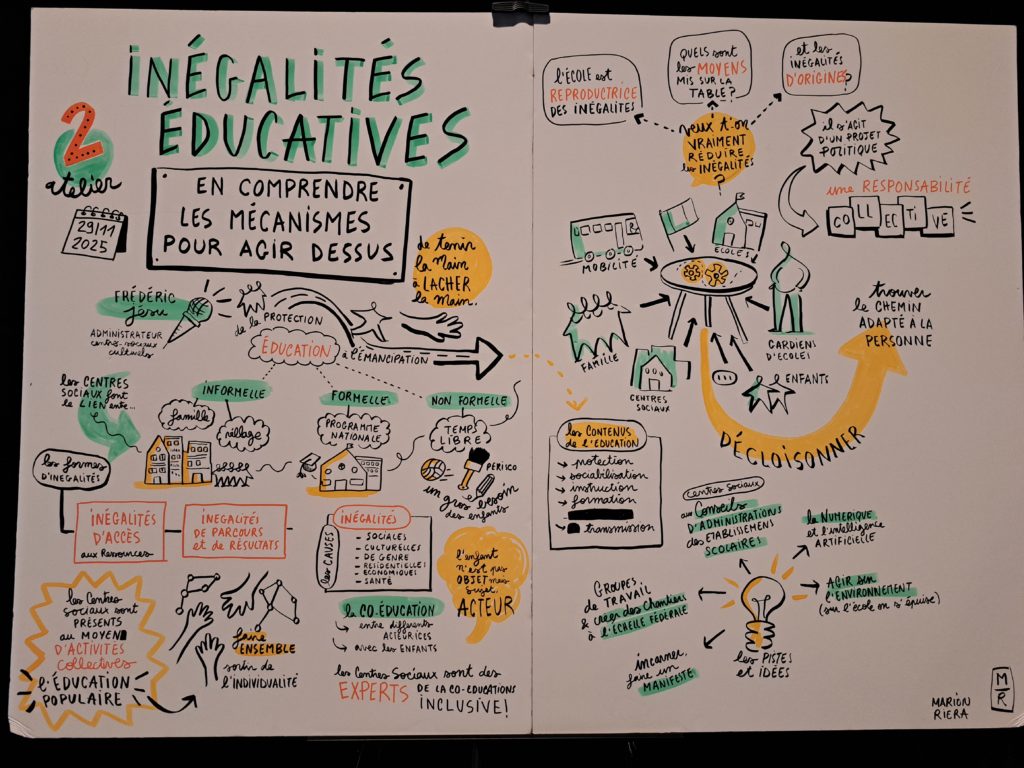 INÉGALITÉS
ÉDUCATIVES
2
atelier
29/11
2025
EN COMPRENDRE
LES MÉCANISMES
POUR AGIR DESSUS
de tenir
la main
à LACHER
la main.
FRÉDÉRIC
Jésu
ADMINISTRATEUR
centres-sociaux
culturels
de la PROTECTION
ÉDUCATION
à l'ÉMANCIPATION
les CENTRES
SOCIAUX font
le LIEN entre...
INFORMELLE
famille
village
FORMELLE
PROGRAMME
NATIONALE
NON FORMELLE
TEMPS
LIBRE
PÉRISCO
un gros besoin
des enfants
les formes
d'INÉGALITÉS
INÉGALITÉS
D'ACCÈS
aux Ressources
INEGALITÉS
DE PARCOURS
et de RÉSULTATS
les CAUSES
INÉGALITÉS
- SOCIALES
- CULTURELLES
- DE GENRE
- RESIDENTIELLES
- ECONOMIQUES
- SANTÉ
l'enfant
n'est pas
OBJET mais
sujet.
ACTEUR
les Centres
sociaux sont
PRÉSENTS
au MOYEN
D'ACTIVITÉS
collectives
l'ÉDUCATION
POPULAIRE
faire
ENSEMBLE
sortir de
l'INDIVIDUALITÉ
la CO-ÉDUCATION
→ entre différents
→ avec les ENFANTS
les Centres Sociaux sont des
EXPERTS DE LA CO-EDUCATIONS
INCLUSIVE!
l'ÉCOLE est
REPRODUCTRICE
DES INÉGALITÉS
QUELS sont
les MOYENS
MIS SUR LA
TABLE?
et les
INÉGALITÉS
D'ORIGINES?
veux t'on
VRAIMENT
RÉDUIRE
les INÉGALITÉS
?
il s'AGIT
D'UN PROJET
POLITIQUE
une RESPONSABILITÉ
COLLECTIVE
MOBILITÉ
ECOLES
FAMILLE
CENTRES
SOCIAUX
GARDIENS
D'ECOLES
ENFANTS
trouver
le CHEMIN
ADAPTÉ À LA
PERSONNE
DÉCLOISONNER
les CONTENUS
de l'EDUCATION
→ protection
→ sociabilisation
→ instruction
→ formation
→ transmission
Centres sociaux
aux Conseils
D'ADMINISTRATIONS
des ETABLISSEMENTS
SCOLAIRES
la NUMERIQUE
et l'intelligence
ARTIFICIELLE
GROUPES
DE TRAVAIL
& créer des Chantier
à l'ÉCHELLE FÉDÉRALE
AGIR sur
l'ENVIRONNEMENT
(sur l'école on s'épuise)
incarner,
faire un
MANIFESTE
les PISTES
et IDÉES
MARION
RIERA
M
R